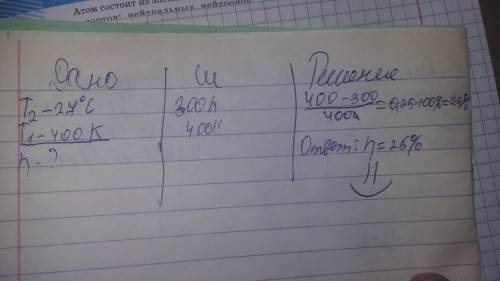 Атом состоит из
нейтральных нейтроно
Дано
T₂-27°C
T₁-400 K
η-?
Си
300K
400K
Решение
400-300/400 = 0,25·100%=25%
Ответ: η=25%